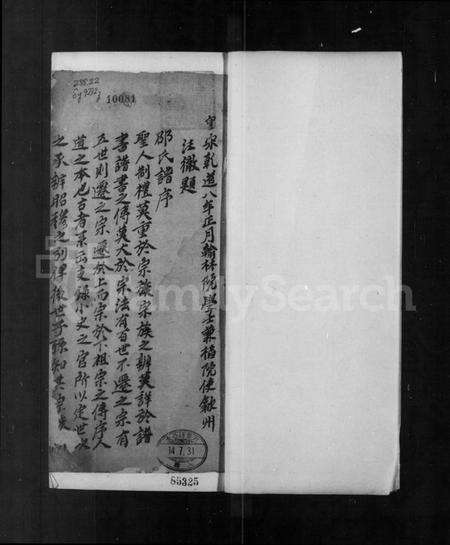 皇宋乾道八年正月翰林院學士兼樞院使敍州
汪徹題
邵氏譜序
聖人制禮莫重於宗族宗族之辨莫詳於譜
書譜書之傳莫大於宗法有百世不遷之宗有
五世則遷之宗遷於上而宗於下祖宗之傳序人
道之本也古者
小史之官所以定世
之承辨昭穆之列俾後世子孫知其宗
10081
14.7.31
85325
FamilySearch